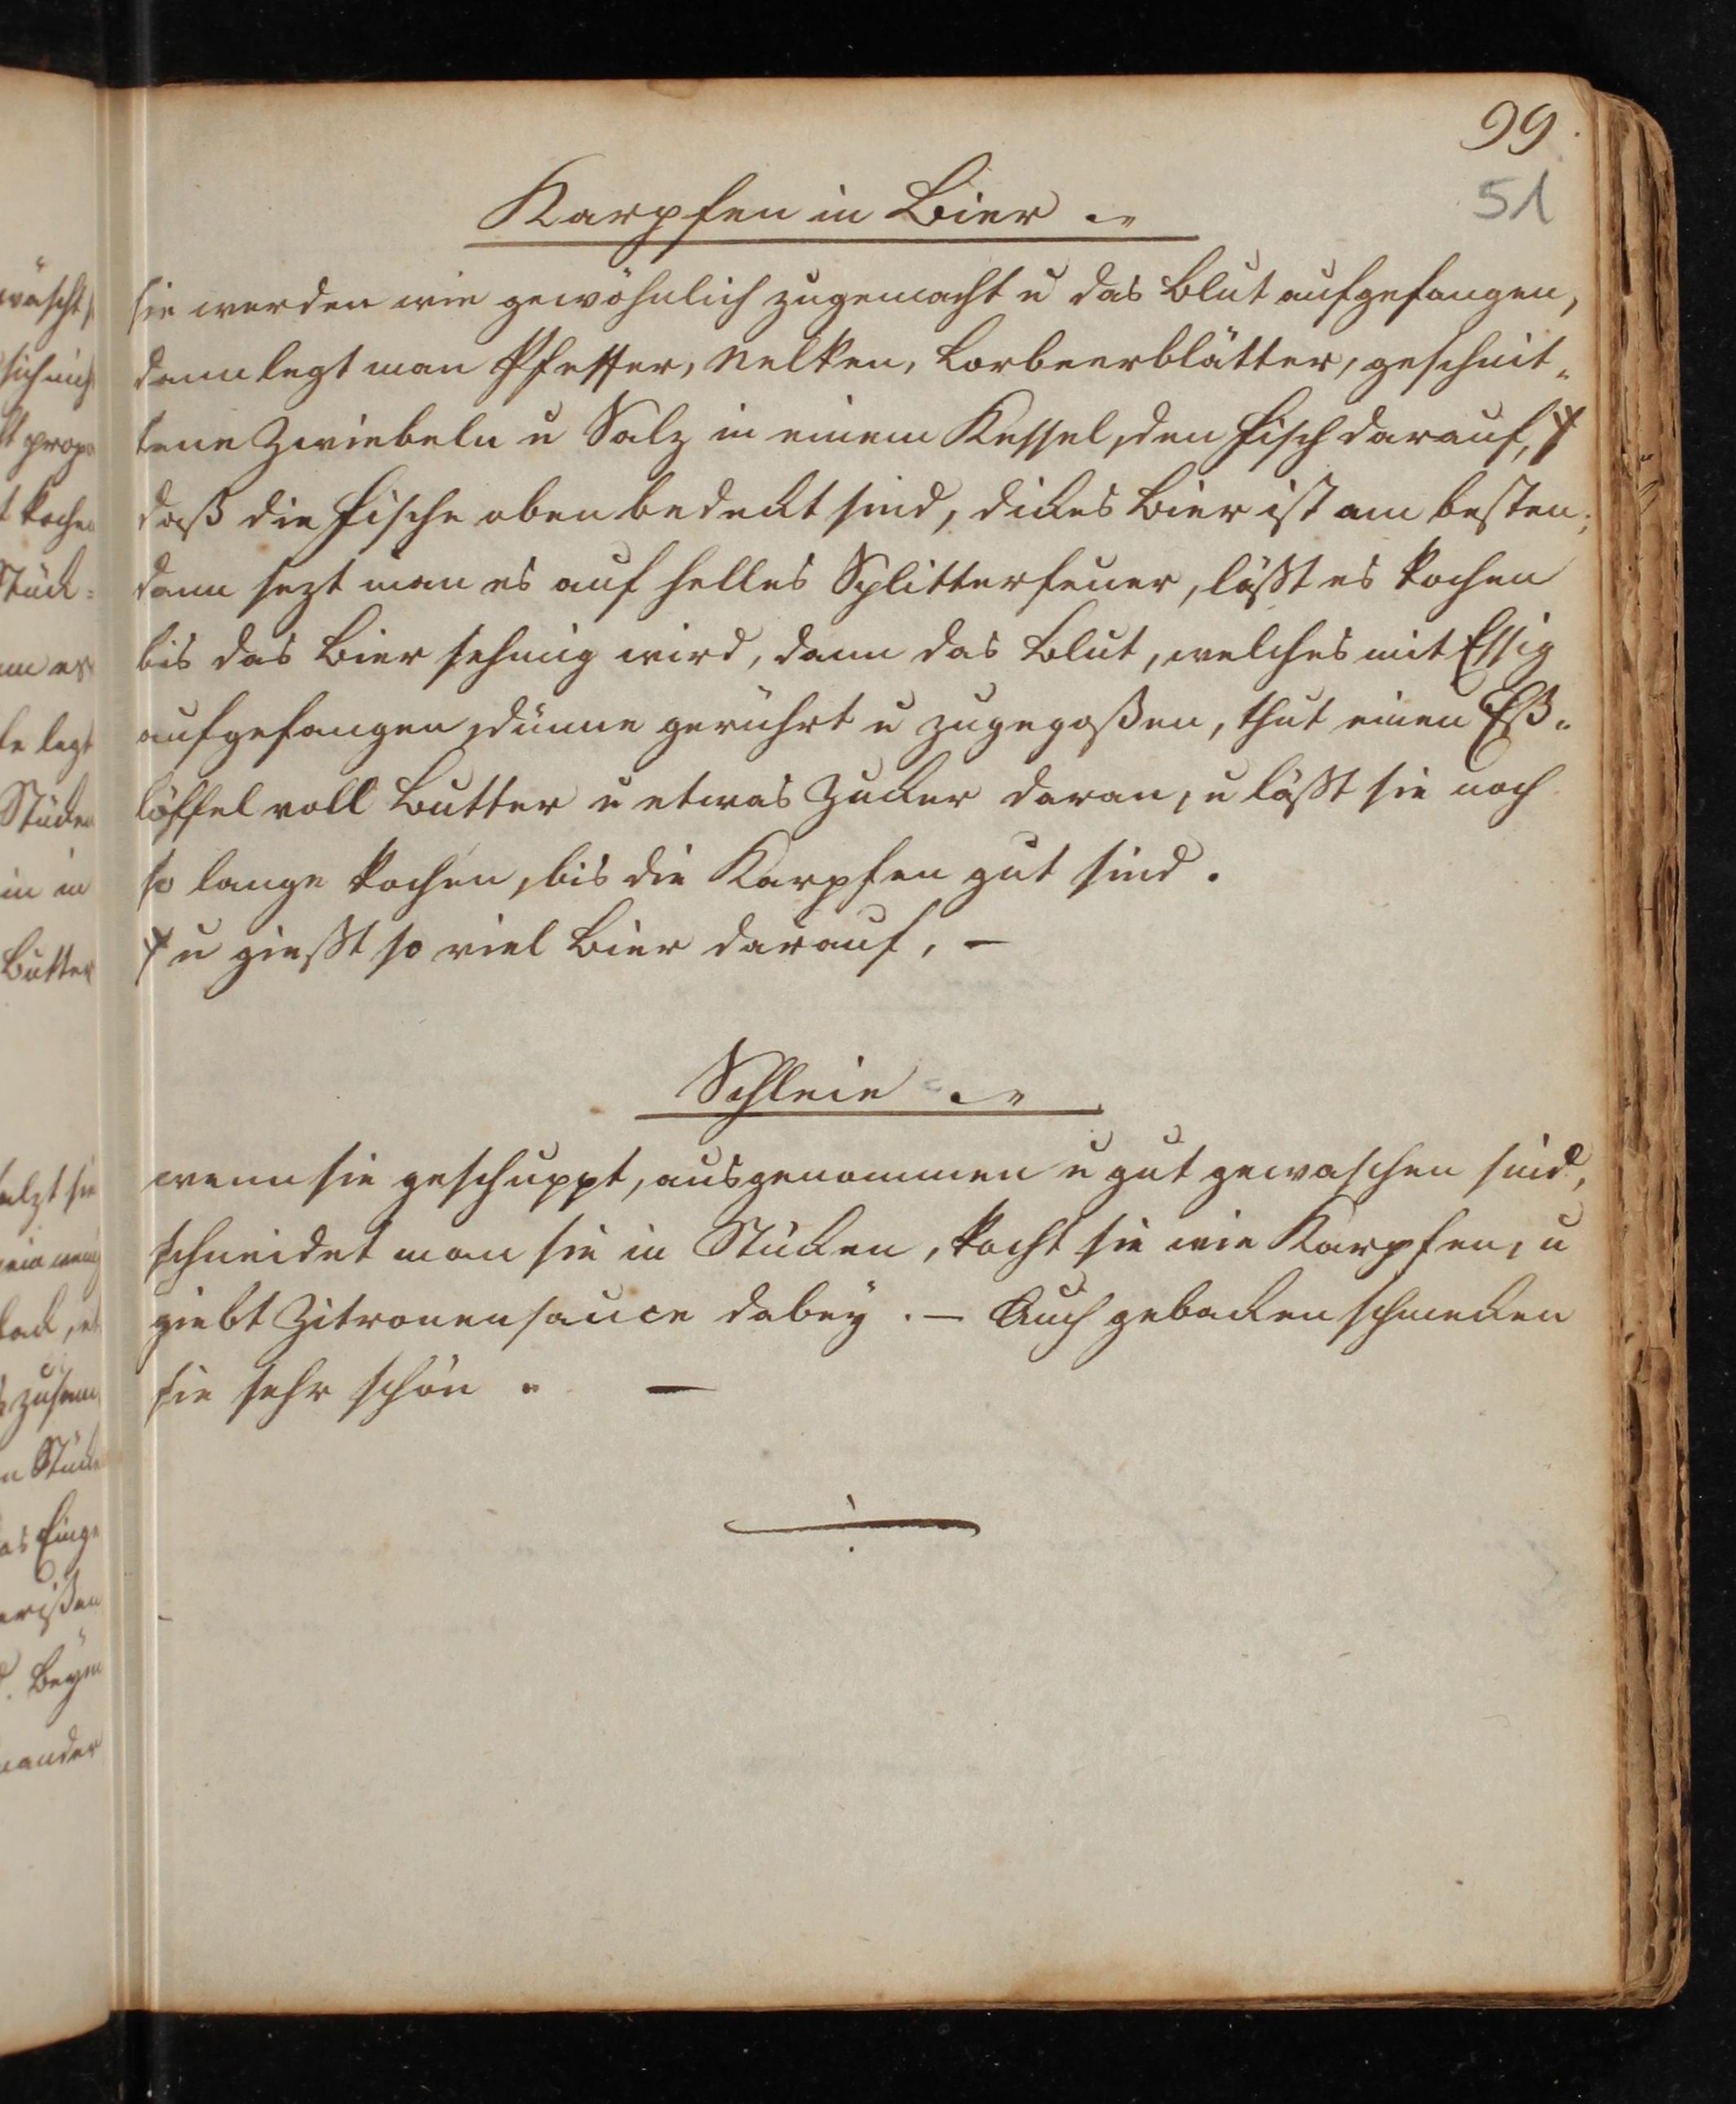 99.
51
Karpfen in Bier .„
sie werden wie gewöhnlich zugemacht u das Blut aufgefangen,
dann legt man Pfeffer, Nelken, Lorbeerblätter, geschnit„
tene Zwiebeln u Salz in einem Kessel, den Fisch darauf, ⨯
daß die Fische oben bedeckt sind, dickes Bier ist am besten;
dann sezt man es auf helles Splitterfeuer, läßt es kochen
bis das Bier sehmig wird, dann das Blut, welches mit Essig
aufgefangen, dünne gerührt u zugegoßen, thut einen Eß„
löffel voll Butter u etwas Zucker daran, u läßt sie noch
so lange kochen, bis die Karpfen gut sind.
⨯ u gießt so viel Bier darauf, –
Schleie .„
wenn sie geschuppt, ausgenommen u gut gewaschen sind,
schneidet man sie in Stücken, kocht sie wie Karpfen, u
giebt Zitronensauce dabey. – Auch gebacken schmecken
sie sehr schön. –
wäscht,
sich nich
kochen
Stück=
legt
Stücken
in in
Butter
salzt sie
zusam
Stück
Beym
nander